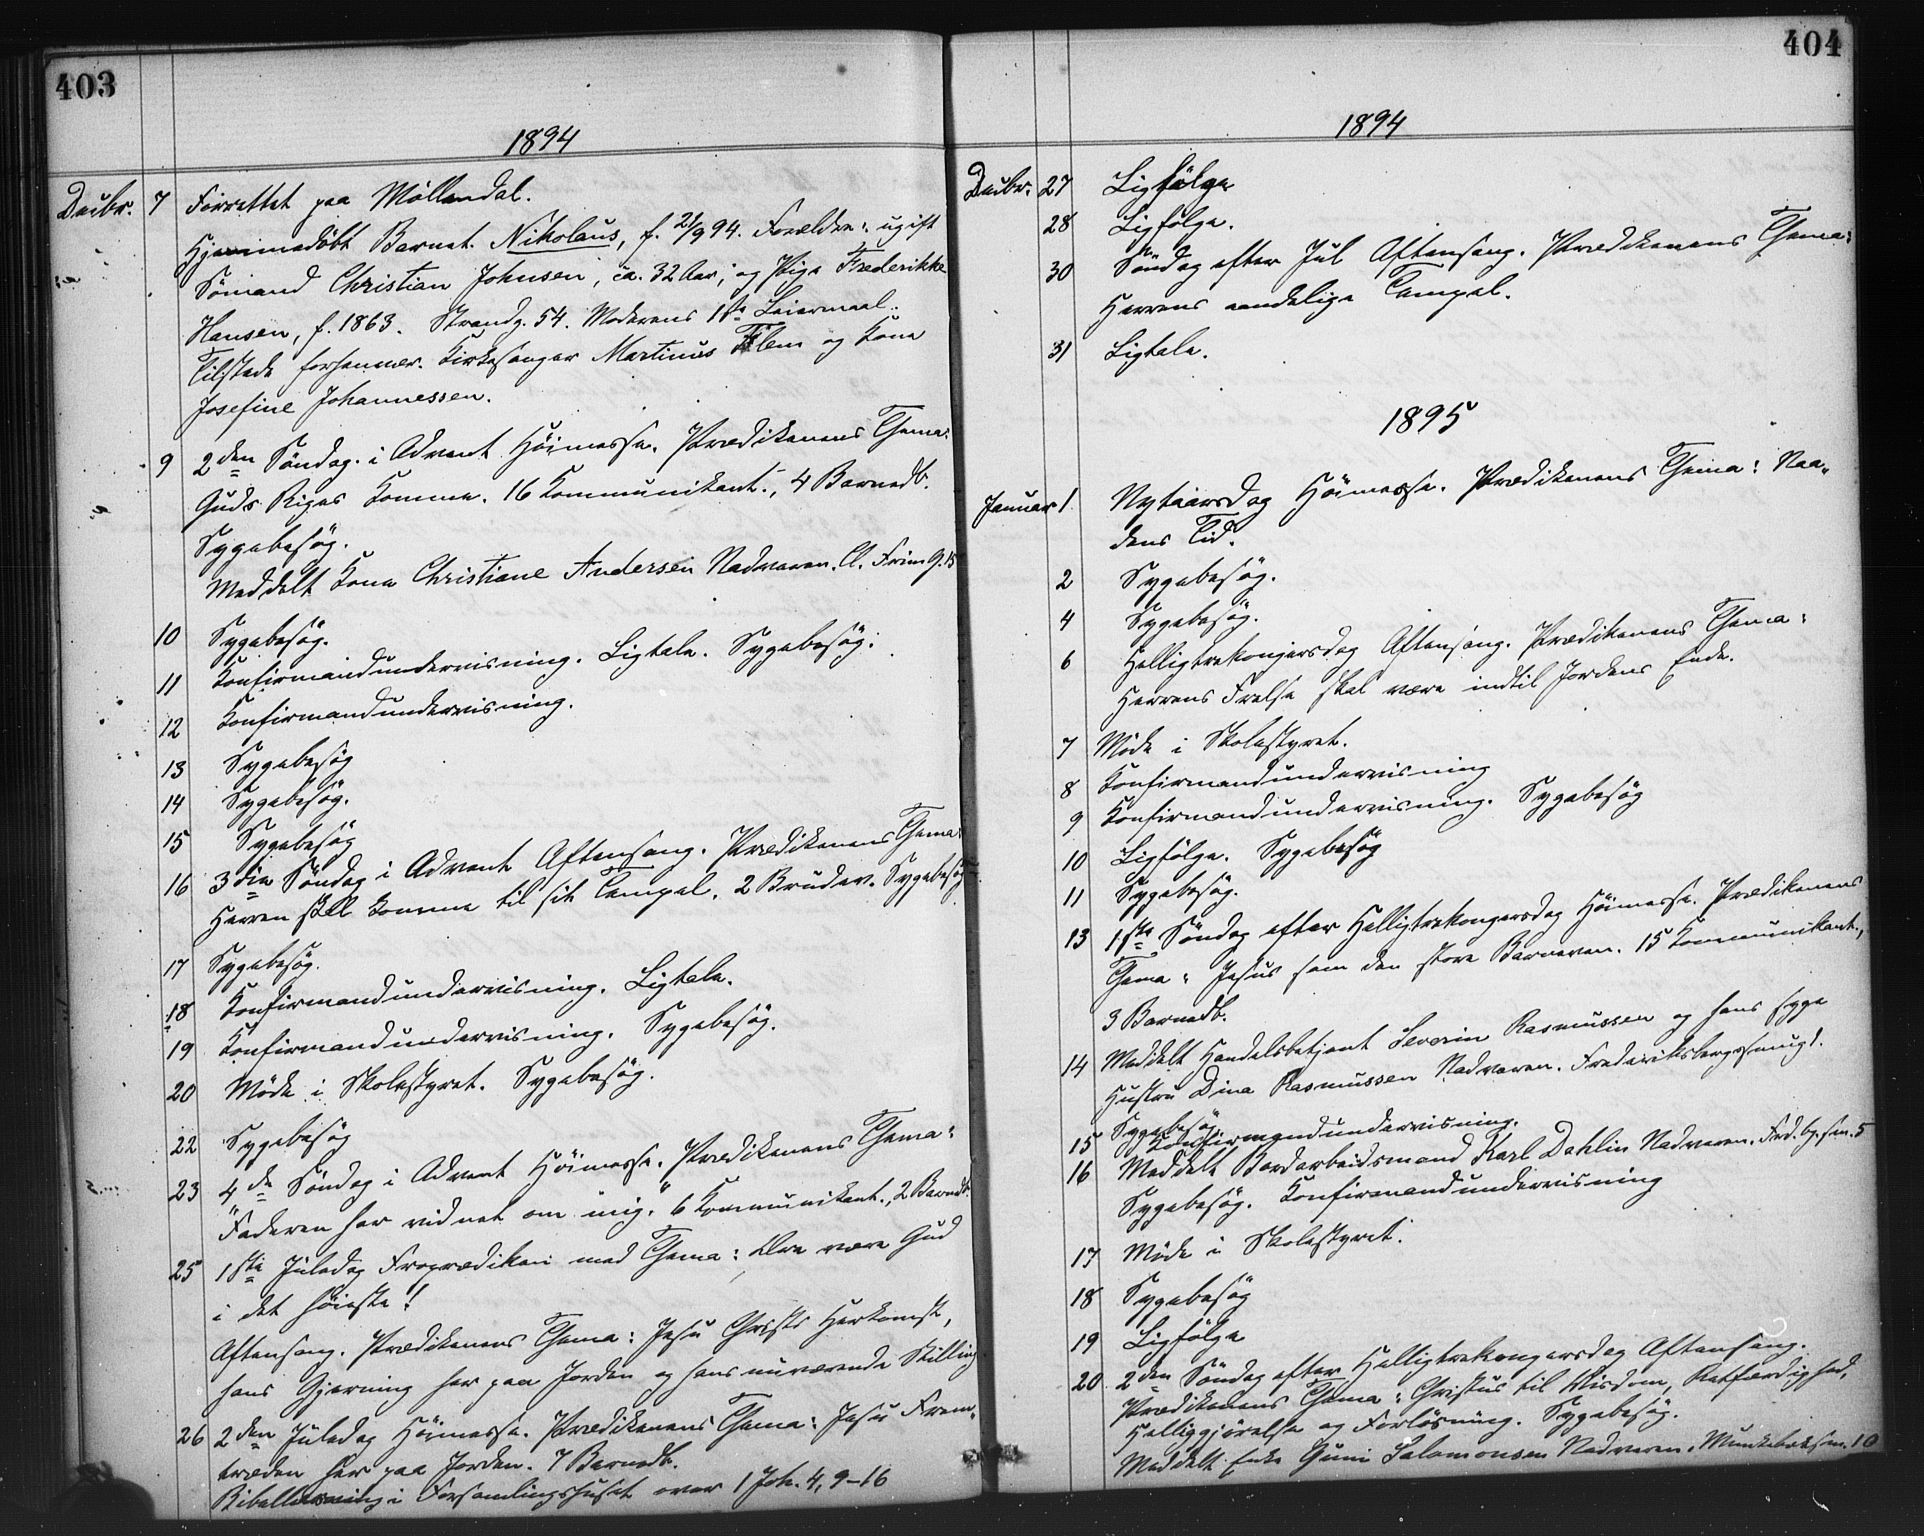 403
1894
Decbr. 7 Forrettet paa Møllendal.
Hjemmedøbt Barnet Nikolaus, f. 21/9 94. Forældre: ugift
Sømand Christian Johnsen, ca. 32 Aar, og Pige Frederikke
Hansen, f. 1863. Strandg. 54. Moderens 1ste Leiermaal.
Tilstede forhenvær. Kirkesanger Martinus Flem og Kone
Josefine Johannessen.
9 2den Søndag i Advent Høimesse. Prædikenens Thema:
Guds Riges Komme. 16 Kommunikant., 4 Barnedb.
Sygebesøg.
Meddelt Kone Christiane Andersen Nadveren. Cl. Frim. G. 15
10 Sygebesøg.
11 Konfirmandundervisning. Ligtale. Sygebesøg.
12 Konfirmandundervisning.
13 Sygebesøg
14 Sygebesøg.
15 Sygebesøg
16 3die Søndag i Advent Aftensang. Prædikenens Thema:
Herren skal komme til sit Tempel. 2 Brudev. Sygebesøg
17 Sygebesøg.
18 Konfirmandundervisning. Ligtale.
19 Konfirmandundervisning. Sygebesøg.
20 Møde i Skolestyret. Sygebesøg.
22 Sygebesøg
23 4de Søndag i Advent Høimesse. Prædikenens Thema:
"Faderen har vidnet om mig." 6 Kommunikant., 2 Barnedb.
25 1ste Juledag Froprædiken med Thema: Ære være Gud
i det høieste!
Aftensang. Prædikenens Thema: Jesu Christi Herkomst,
hans Gjerning her paa Jorden og hans nuværende Stilling
26 2den Juledag Høimesse. Prædikenens Thema: Jesu Frem-
træden her paa Jorden. 7 Barnedb.
Bibellæsning i Forsamlingshuset over 1 Joh. 4, 9-16
404
1894
Decbr. 27 Ligfølge
28 Ligfølge.
30 Søndag efter Jul Aftensang. Prædikenens Thema:
Herrens aandelige Tempel.
31 Ligtale.
1895
Januar 1 Nytaarsdag Høimesse. Prædikenens Thema: Naa-
dens Tid.
2 Sygebesøg.
4 Sygebesøg.
6 Helligtrekongersdag Aftensang. Prædikenens Thema:
Herrens Frelse skal være indtil Jordens Ende.
7 Møde i Skolestyret.
8 Konfirmandundervisning
9 Konfirmandundervisning. Sygebesøg
10 Ligfølge. Sygebesøg
11 Sygebesøg.
13 1ste Søndag efter Helligtrekongersdag Høimesse. Prædikenens
Thema: Jesus som den store Barneven. 15 Kommunikant.,
3 Barnedb.
14 Meddelt Handelsbetjent Severin Rasmussen og hans syge
Hustru Dina Rasmussen Nadveren. Frederiksbergsmug 1.
Sygebesøg
15 Konfirmandundervisning.
16 Meddelt Bordarbeidsmand Karl Dahlin Nadveren. Frd. bg. sm. 5
Sygebesøg. Konfirmandundervisning
17 Møde i Skolestyret.
18 Sygebesøg
19 Ligfølge
20 2den Søndag efter Helligtrekongersdag Aftensang.
Prædikenens Thema: Christus til Visdom, Retfærdighed,
Helliggjørelse og Forløsning. Sygebesøg.
Meddelt Enke Guni Salomonsen Nadveren. Munkebæksm. 10